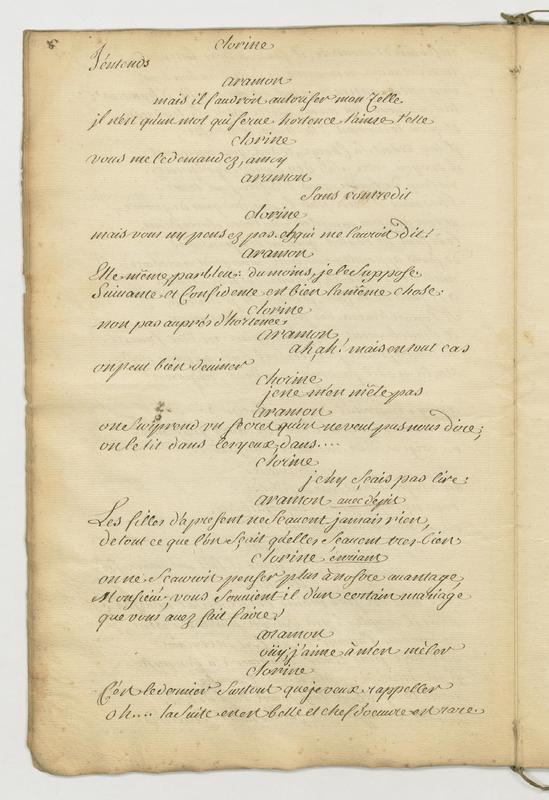 8
clorine
J'entends
aramon
mais il faudroit autoriser mon Zelle
il n'est qu'un mot qui serue hortence l'aime t'elle
clorine
vous me le demandez, a moy
aramon
Sans contredit
clorine
mais vous n'y pensez pas. et qui me l'auroit dit!
aramon
Elle même, parbleu: du moins, je le Suppose
Suiuante et Confidente est bien la même chose.
clorine
non pas auprés d'hortence,
aramon
ah, ah! mais en tout cas
on peut bien deuiner
clorine
je ne m'en mêle pas
aramon
on Surprend un secret qu'on ne veut pas nous dire;
on le lit dans les yeux, dans....
clorine
je n'y sçais pas lire:
aramon auec dépit
Les filles d'aprésent ne Scauent jamais rien,
de tout ce que l'on Sçait qu'elles Scauent tres bien
clorine en riant
on ne Scauroit penser plus à nostre auantage,
Monsieur, vous Souuient il d'un certain mariage
que vous auez fait faire?
aramon
ouy; j'aime à m'en mêler
clorine
C'est le dernier Surtout que je veux rappeller
oh.... la Suite en est belle et chef d'oeuure est rare.